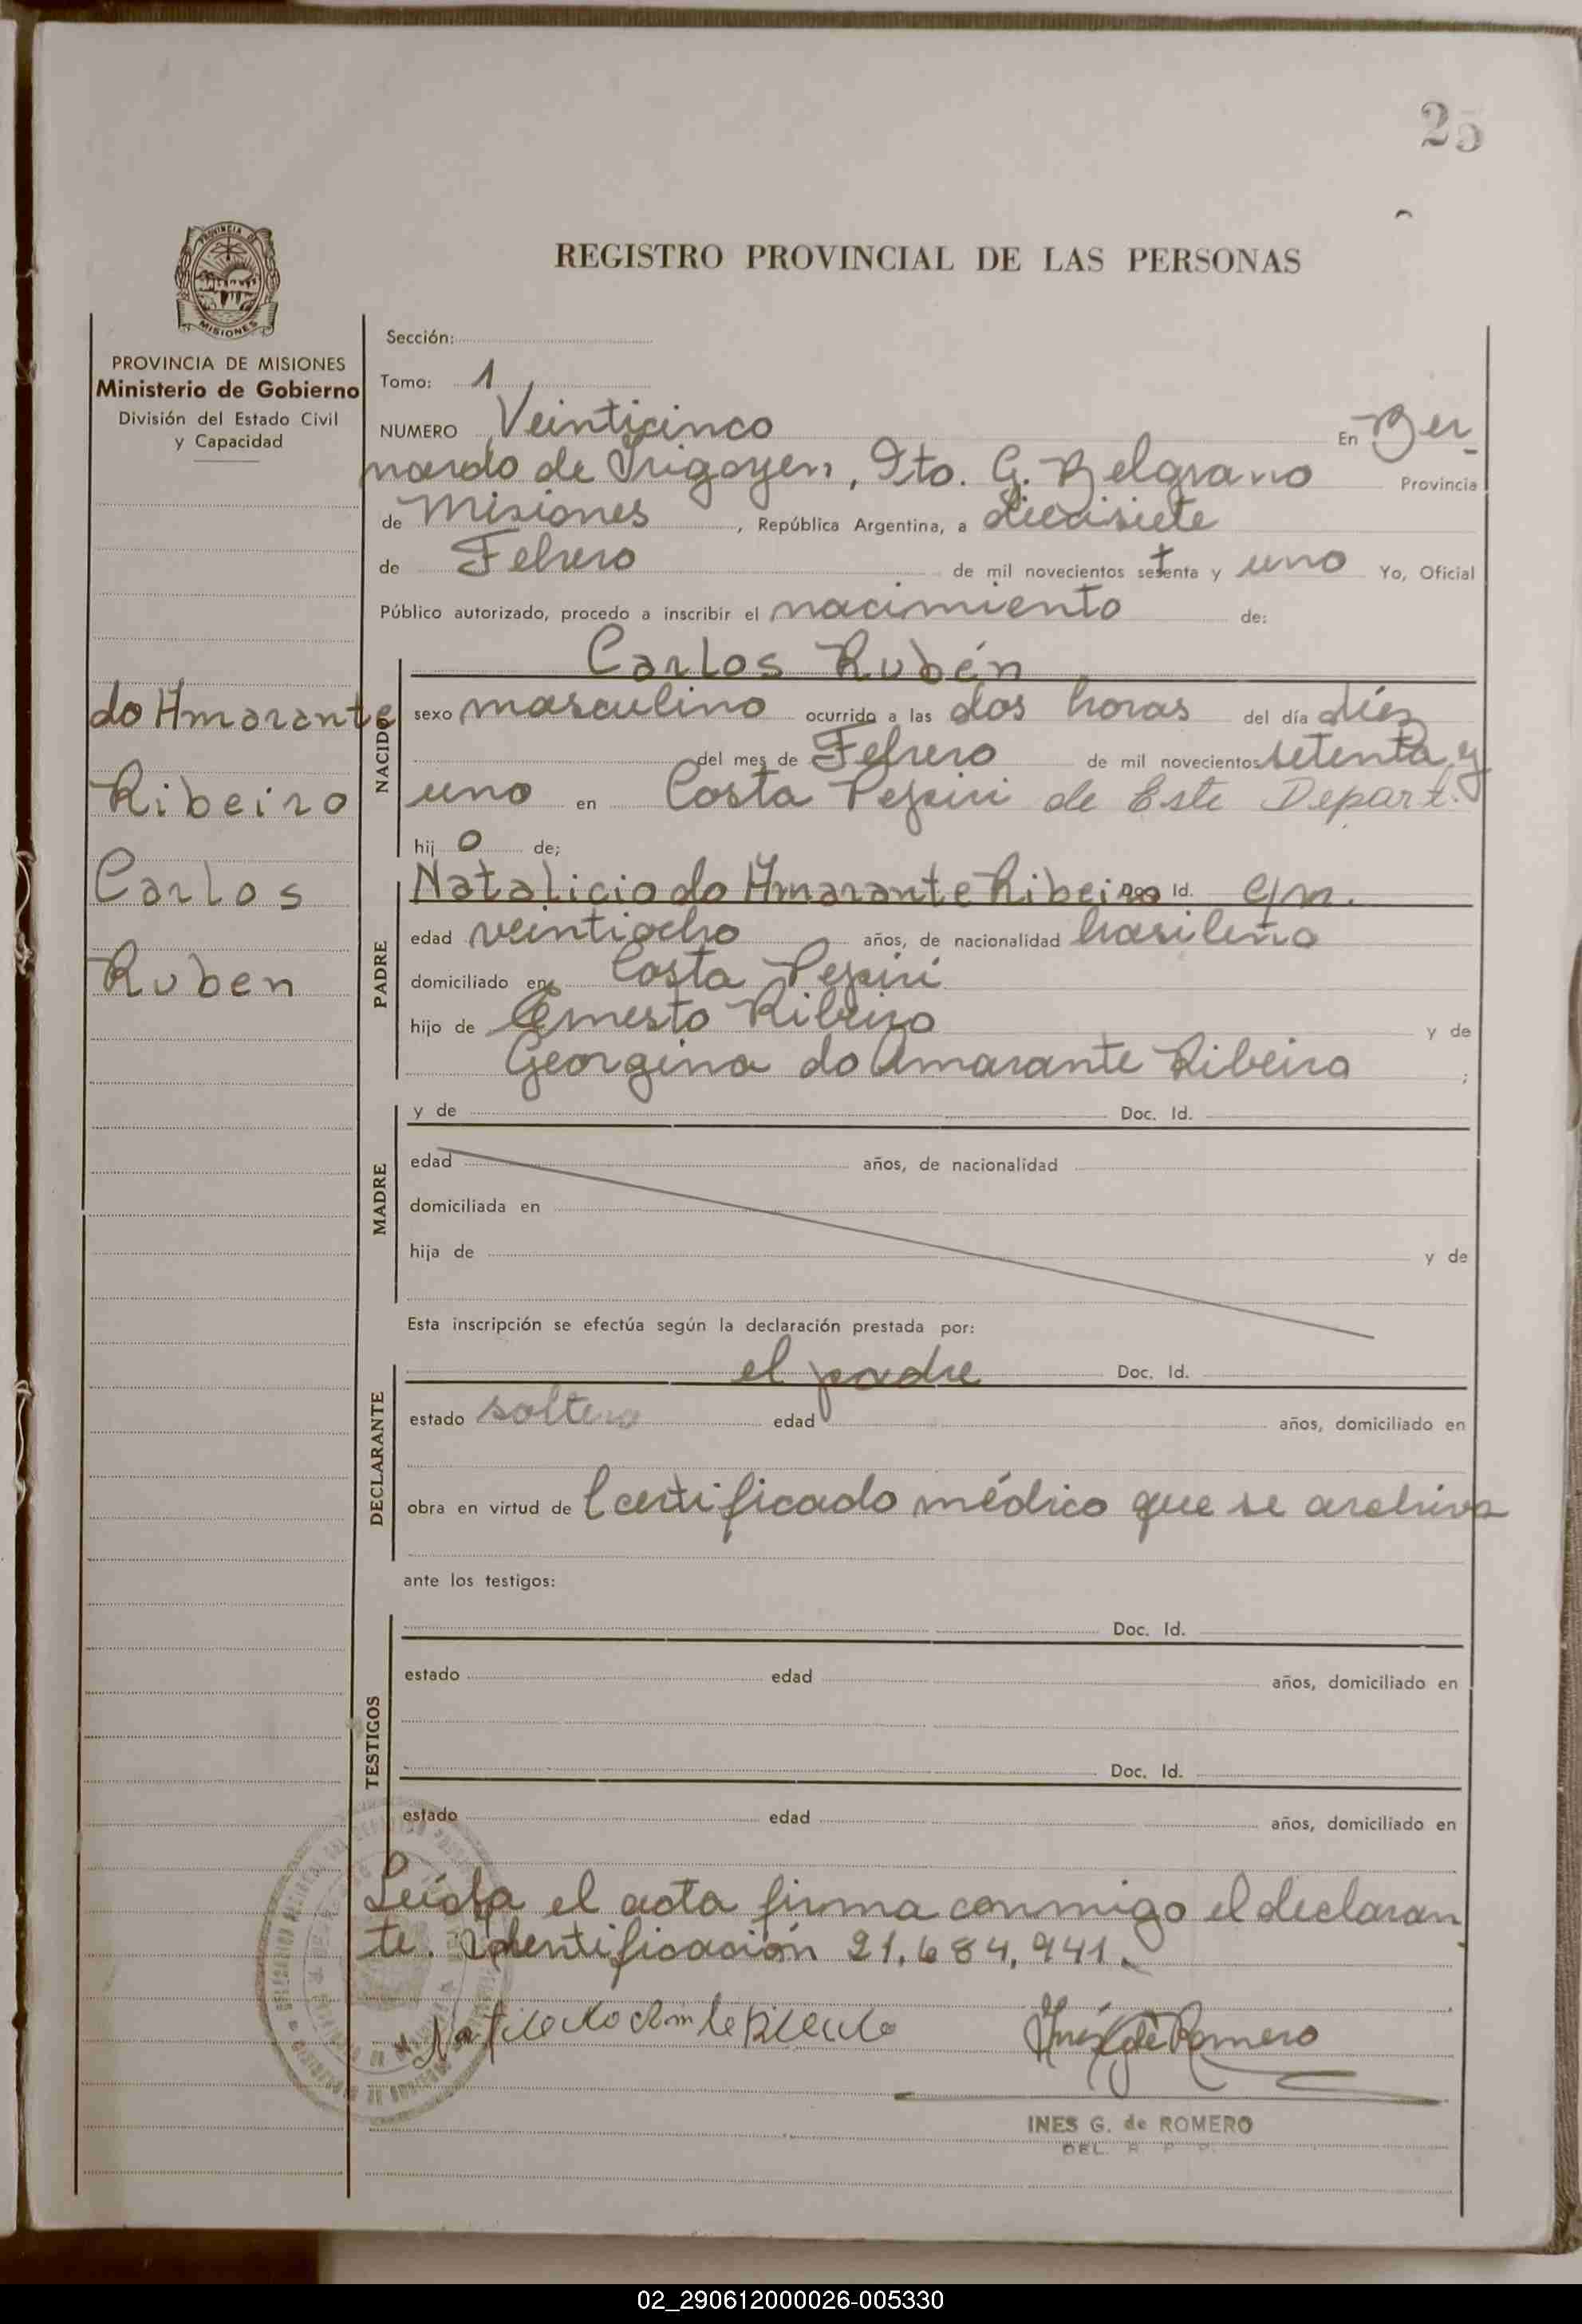 25
REGISTRO PROVINCIAL DE LAS PERSONAS
PROVINCIA DE MISIONES
Ministerio de Gobierno
División del Estado Civil
y Capacidad
do Amarante
Ribeiro
Carlos
Ruben
Sección:
Tomo: 1
NUMERO Veinticinco En Ber
nardo de Irigoyen, Dto. G. Belgrano Provincia
de Misiones, República Argentina, a diecisiete
de Febrero de mil novecientos setenta y uno Yo, Oficial
Público autorizado, procedo a inscribir el nacimiento de:
Carlos Rubén
NACIDO
sexo masculino ocurrido a las dos horas del día diez
del mes de Febrero de mil novecientos setenta y
uno en Costa Pepiri de Este Depart.
hij o de;
PADRE
Natalicio do Amarante Ribeiro Doc Id. c/n.
edad veintiocho años, de nacionalidad brasileña
domiciliado en Costa Pepiri
hijo de Ernesto Ribeiro y de
Georgina do Amarante Ribeiro ;
MADRE
y de Doc. Id.
edad años, de nacionalidad
domiciliada en
hija de y de
Esta inscripción se efectúa según la declaración prestada por:
DECLARANTE
el padre Doc. Id.
estado soltero edad años, domiciliado en
obra en virtud de Certificado médico que se archiva
ante los testigos:
TESTIGOS
Doc. Id.
estado edad años, domiciliado en
Doc. Id.
estado edad años, domiciliado en
Leída el acta firma conmigo el declaran
te. Identificación 21.684.941.
Inés G de Romero
INES G. de ROMERO
DEL. R P P.
02_290612000026-005330